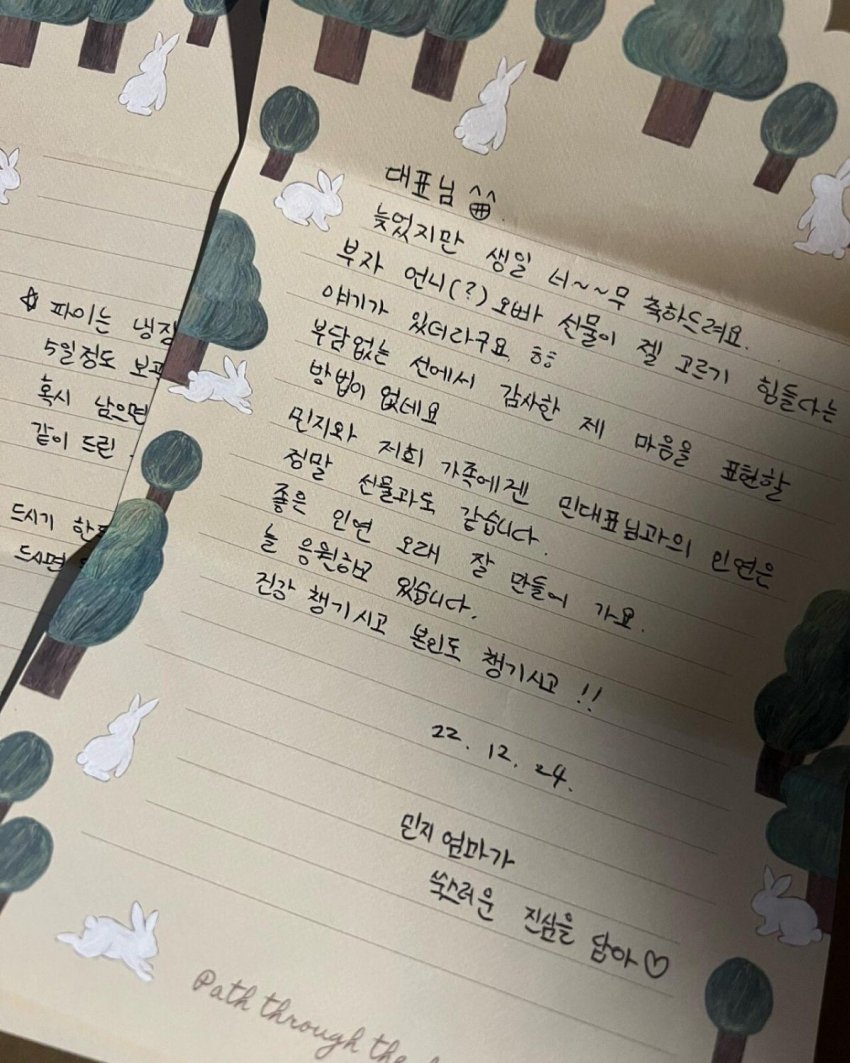 ☆ 파이는 냉장
5일정도 보관
혹시 남으면
같이 드린
드시기 한
드시면
대표님
늦었지만 생일 너~~무 축하드려요.
부자 언니(?) 오빠 선물이 젤 고르기 힘들다는
얘기가 있더라구요 ㅎㅎ
부담없는 선에서 감사한 제 마음을 표현할
방법이 없네요
민지와 저희 가족에겐 민대표님과의 인연은
정말 선물과도 같습니다.
좋은 인연 오래 잘 만들어 가요.
늘 응원하고 있습니다.
건강 챙기시고 본인도 챙기시고 !!
22. 12. 24.
민지 엄마가
쑥스러운 진심을 담아♡
Path through the